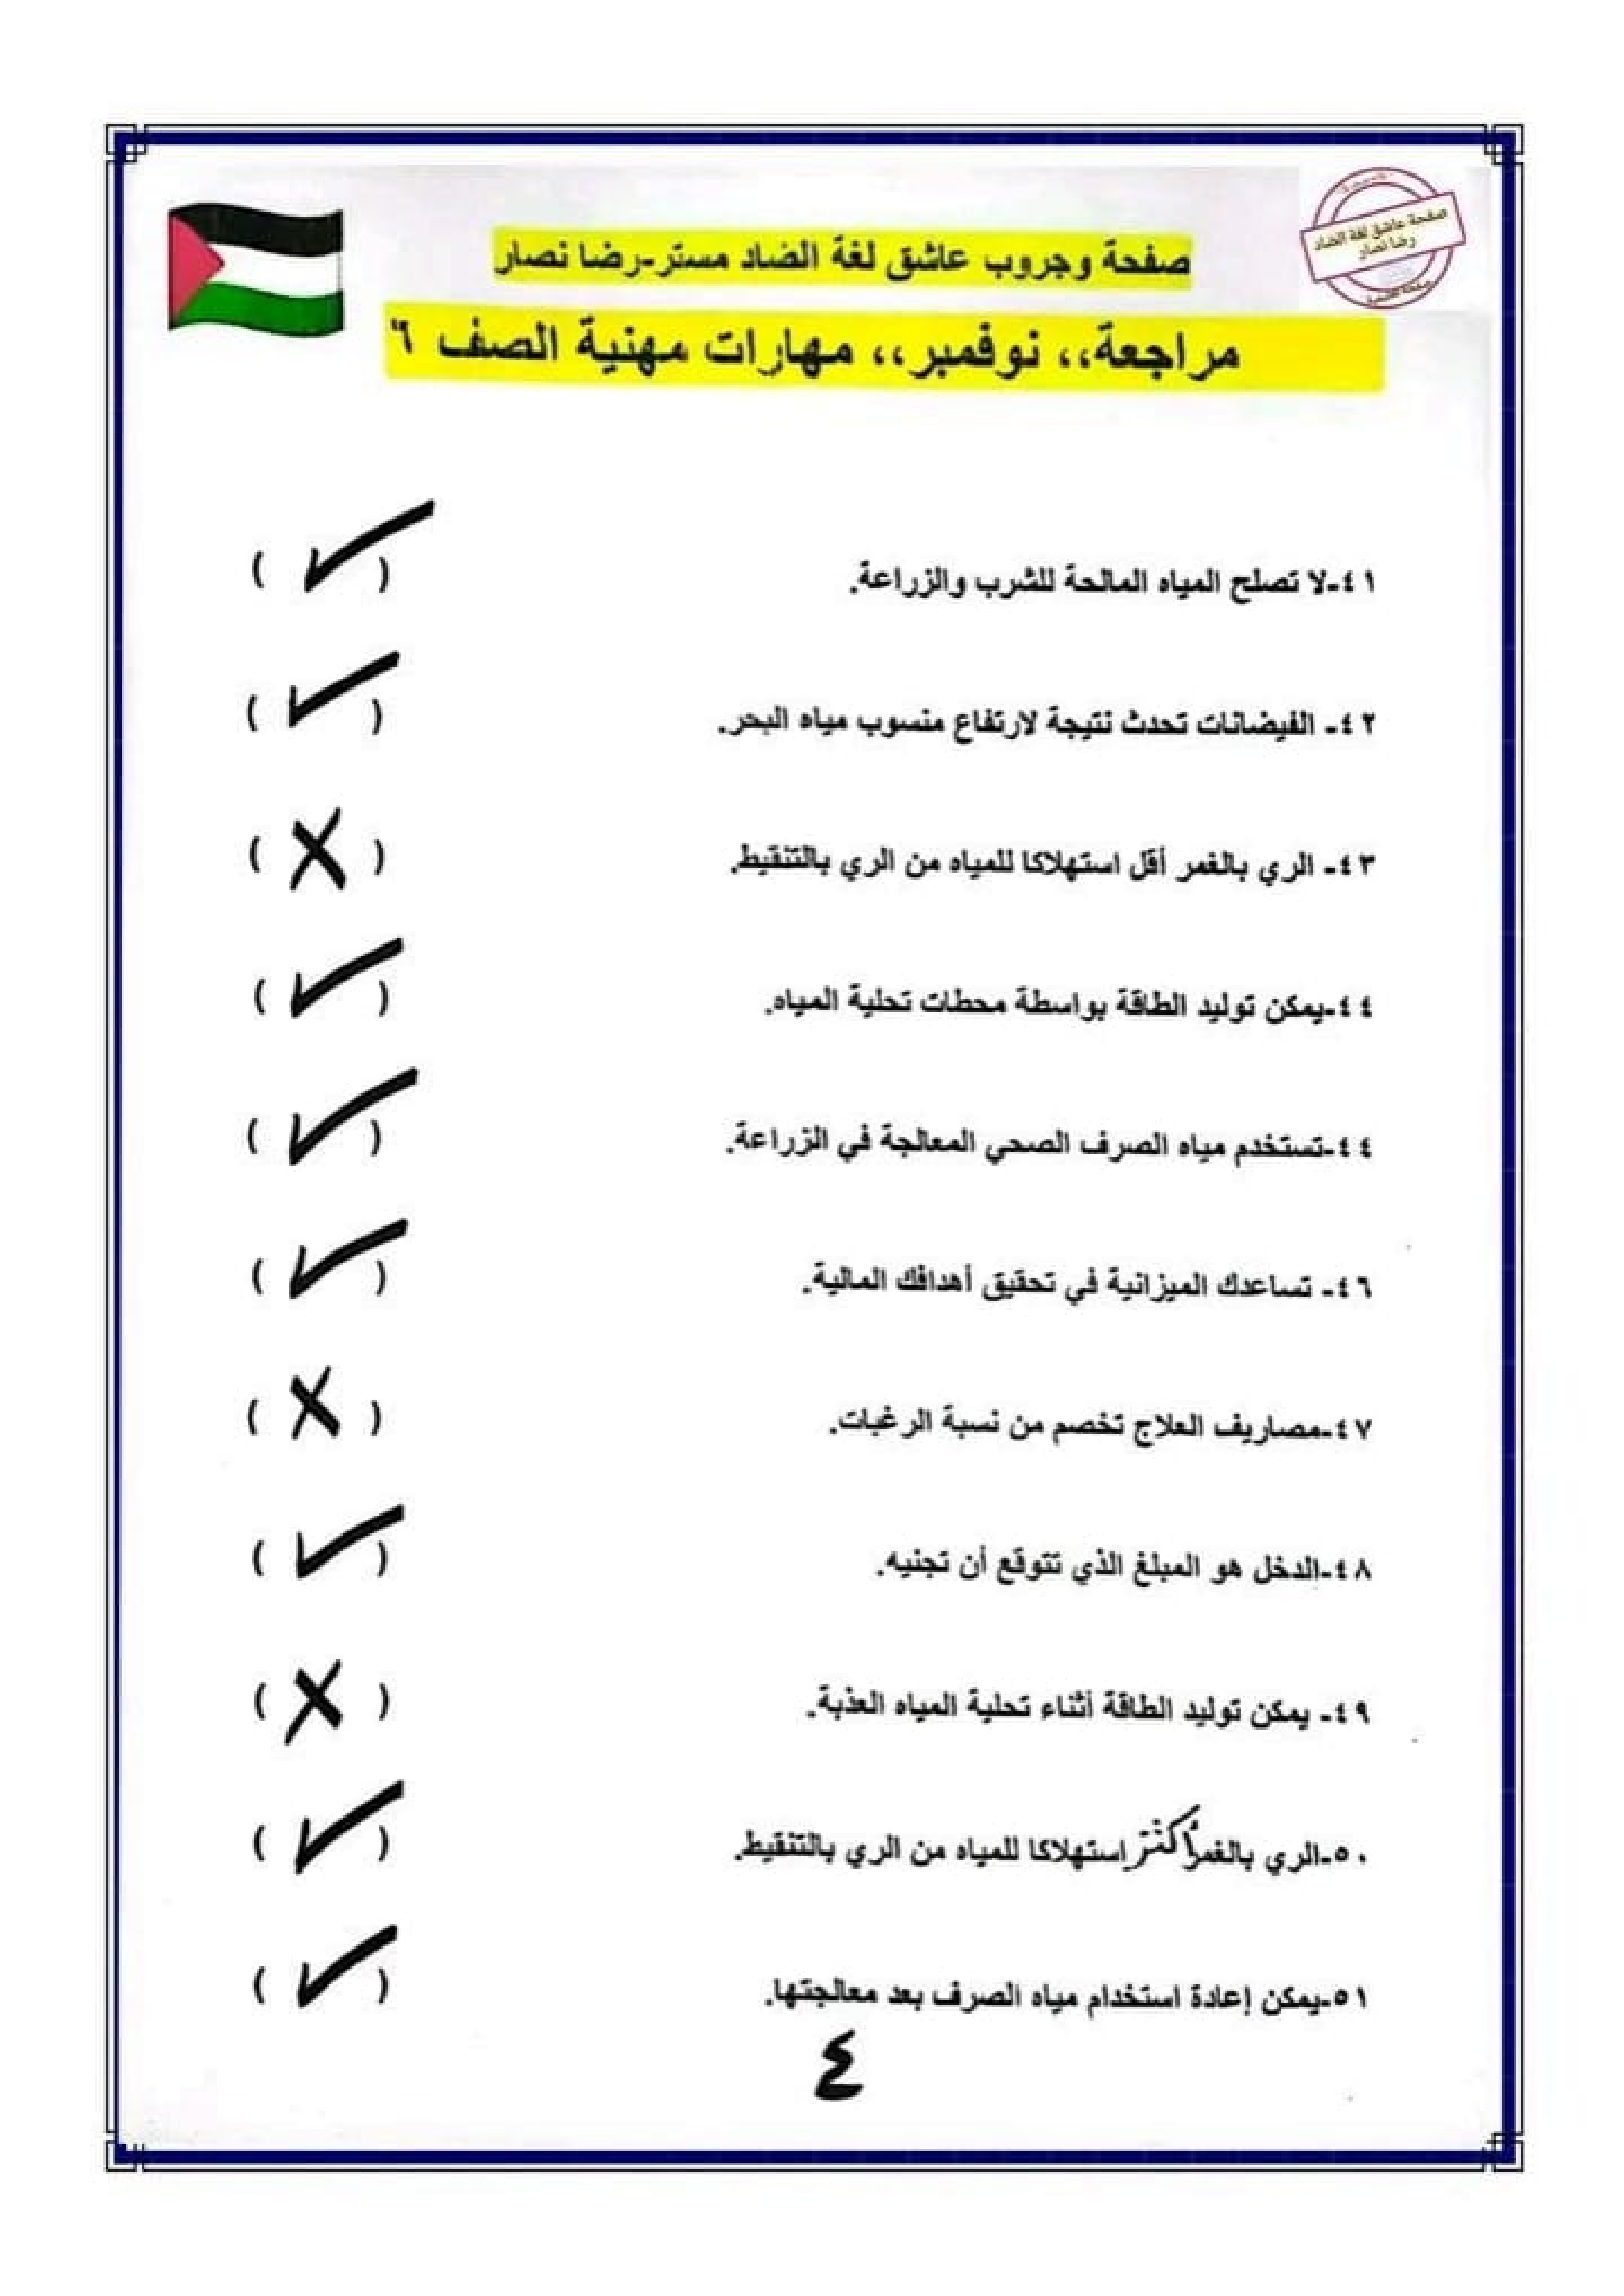 صفحة عاشق لغة الضاد
رضا نصار
صفحة وجروب عاشق لغة الضاد مستر-رضا نصار
مراجعة،، نوفمبر،، مهارات مهنية الصف ٦
٤١-لا تصلح المياه المالحة للشرب والزراعة. ( ✓ )
٤٢- الفيضانات تحدث نتيجة لارتفاع منسوب مياه البحر. ( ✓ )
٤٣- الري بالغمر أقل استهلاكا للمياه من الري بالتنقيط. ( X )
٤٤-يمكن توليد الطاقة بواسطة محطات تحلية المياه. ( ✓ )
٤٤-تستخدم مياه الصرف الصحي المعالجة في الزراعة. ( ✓ )
٤٦- تساعدك الميزانية في تحقيق أهدافك المالية. ( ✓ )
٤٧-مصاريف العلاج تخصم من نسبة الرغبات. ( X )
٤٨-الدخل هو المبلغ الذي تتوقع أن تجنيه. ( ✓ )
٤٩- يمكن توليد الطاقة أثناء تحلية المياه العذبة. ( X )
٥٠-الري بالغمر أكثر استهلاكا للمياه من الري بالتنقيط. ( ✓ )
٥١-يمكن إعادة استخدام مياه الصرف بعد معالجتها. ( ✓ )
٤